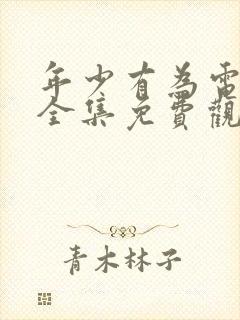 年少有為電
全集免費觀
青木林子